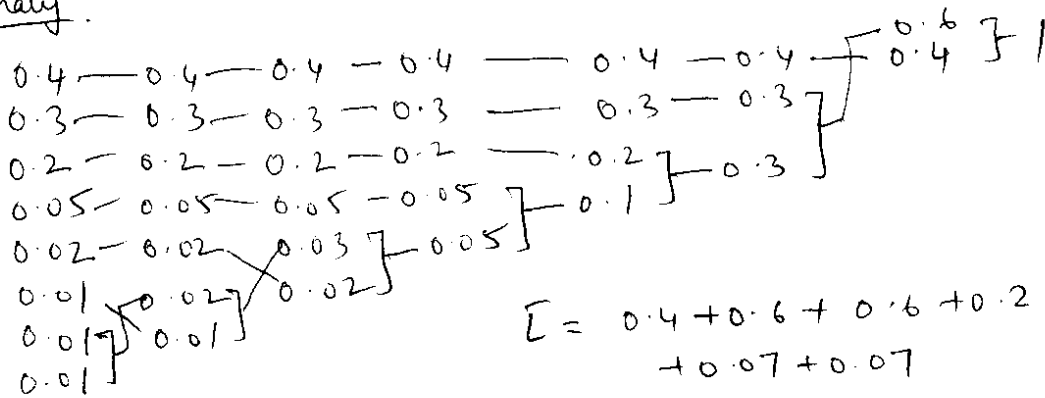 0.6
0.4 — 0.4 — 0.4 — 0.4 — 0.4 — 0.4 — 0.4 } 1
0.3 — 0.3 — 0.3 — 0.3 — 0.3 — 0.3
0.2 — 0.2 — 0.2 — 0.2 — 0.2 ] — 0.3
0.05 — 0.05 — 0.05 — 0.05 ] — 0.1
0.02 — 0.02 0.03 ] — 0.05
0.01 0.02 0.02
0.01 0.01
0.01
= 0.4 + 0.6 + 0.6 + 0.2
+ 0.07 + 0.07